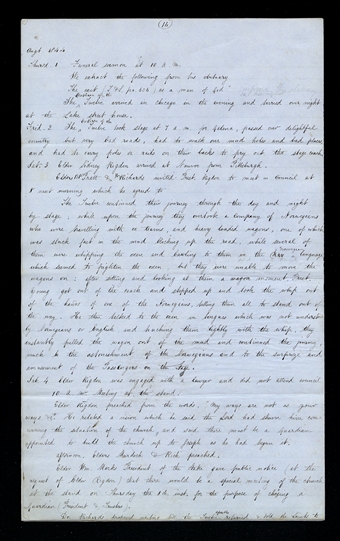 (16)
Augt. 1844
Thursd. 1 Funeral sermon at 10 A M.
We extract the following from his obituary
The sect ... as a man of God
The Twelve arrived in Chicago in the evening and tarried over night
at the Lake street house.
Frid. 2 The Twelve took stage at 7 a.m. for Galena, passed over delightful
country but very bad roads, had to walk over mud holes and bad places
and had to carry poles or rails on their backs to pry out the stage coach
Sat. 3 Elder Sidney Rigdon arrived at Nauvoo from Pittsburgh.
Elders P P Pratt & W Richards invited Prest. Rigdon to meet in council at
8 next morning which he agreed to
The Twelve continued their journey through the day and night
by stage; while upon the journey they overtook a company of Norwegians
who were travelling with ox teams, and heavy loaded wagons, one of which
was stuck fast in the mud blocking up the road, while several of
them were whipping the oxen and bawling to them in the Norwegian language
which seemed to frighten the oxen, but they were unable to move the
wagons on; after sitting and looking at them a moment
being got out of the coach and stepped up and took the whip out
of the hands of one of the Norwegians, telling them all to stand out of
the way. He then talked to the oxen in tongues which was not understood
by Norwegians or English and touching them lightly with the whip, they
instantly pulled the wagon out of the mud and continued the journey,
much to the astonishment of the Norwegians and to the surprize and
amusement of the Passengers on the stage.
Sab. 4 Elder Rigdon was engaged with a lawyer and did not attend council
10 A M Meeting at the stand.
Elder Rigdon preached from the words, "My ways are not as your
ways" &c. He related a vision which he said the Lord had shewn him con-
cerning the situation of the church, and said there must be a Guardian
appointed to build the church up to Joseph as he had begun it.
afternoon, Elders Murdock & Rich preached.
Elder Wm Marks President of the stake gave public notice (at the
request of Elder Rigdon) that there would be a special meeting of the church
at the stand on Thursday the 8th inst. for the purpose of choosing a
Guardian (President & Trustee).
Dr. Richards